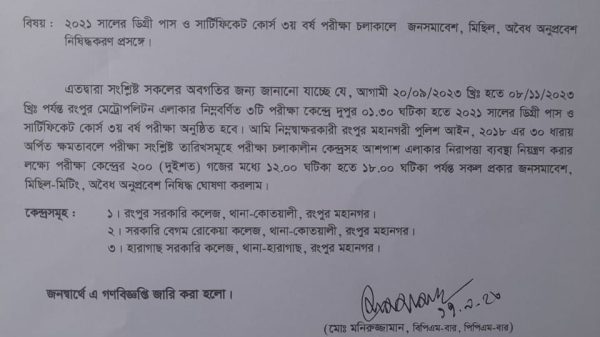 বিষয় : ২০২১ সালের ডিগ্রী পাস ও সার্টিফিকেট কোর্স ৩য় বর্ষ পরীক্ষা চলাকালে জনসমাবেশ, মিছিল, অবৈধ অনুপ্রবেশ
নিষিদ্ধকরণ প্রসঙ্গে।
এতদ্বারা সংশ্লিষ্ট সকলের অবগতির জন্য জানানো যাচ্ছে যে, আগামী ২০/০৯/২০২৩ খ্রিঃ হতে ০৮/১১/২০২৩
খ্রিঃ পর্যন্ত রংপুর মেট্রোপলিটন এলাকার নিম্নবর্ণিত ৩টি পরীক্ষা কেন্দ্রে দুপুর ০১.৩০ ঘটিকা হতে ২০২১ সালের ডিগ্রী পাস ও
সার্টিফিকেট কোর্স ৩য় বর্ষ পরীক্ষা অনুষ্ঠিত হবে। আমি নিম্নস্বাক্ষরকারী রংপুর মহানগরী পুলিশ আইন, ২০১৮ এর ৩০ ধারায়
অর্পিত ক্ষমতাবলে পরীক্ষা সংশ্লিষ্ট তারিখসমূহে পরীক্ষা চলাকালীন কেন্দ্রসহ আশপাশ এলাকার নিরাপত্তা ব্যবস্থা নিয়ন্ত্রণ করার
লক্ষ্যে পরীক্ষা কেন্দ্রের ২০০ (দুইশত) গজের মধ্যে ১২.০০ ঘটিকা হতে ১৮.০০ ঘটিকা পর্যন্ত সকল প্রকার জনসমাবেশ,
মিছিল-মিটিং, অবৈধ অনুপ্রবেশ নিষিদ্ধ ঘোষণা করলাম।
কেন্দ্রসমূহ : ১। রংপুর সরকারি কলেজ, থানা-কোতয়ালী, রংপুর মহানগর।
২। সরকারি বেগম রোকেয়া কলেজ, থানা-কোতয়ালী, রংপুর মহানগর।
৩। হারাগাছ সরকারি কলেজ, থানা-হারাগাছ, রংপুর মহানগর।
জনস্বার্থে এ গণবিজ্ঞপ্তি জারি করা হলো।
(মোঃ মনিরুজ্জামান, বিপিএম-বার, পিপিএম-বার)